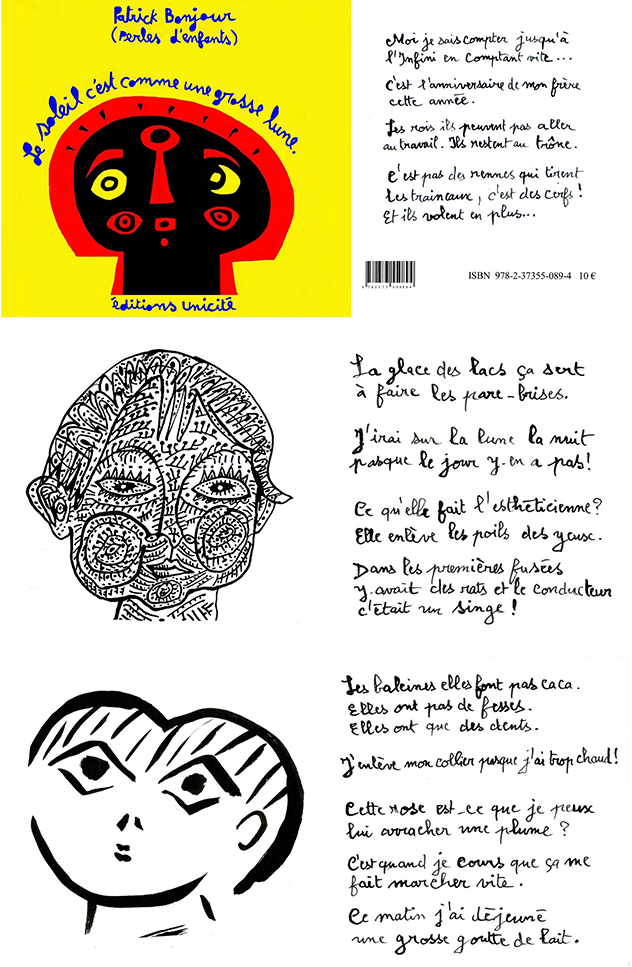 Patrick Bonjour
(Perles d'enfants)
Le soleil c'est comme une grosse lune.
éditions unicité
Moi je sais compter jusqu'à
l'Infini en comptant vite...
C'est l'anniversaire de mon frère
cette année.
Les rois ils peuvent pas aller
au travail. Ils restent au trône.
C'est pas des rennes qui tirent
les traineaux, c'est des cerfs!
Et ils volent en plus...
ISBN 978-2-37355-089-4 10 €
La glace des lacs ça sert
à faire les pare-brises.
J'irai sur la lune la nuit
pasque le jour y-en a pas!
Ce qu'elle fait l'esthéticienne?
Elle enlève les poils des yeux.
Dans les premières fusées
y-avait des rats et le conducteur
c'était un singe!
Les baleines elles font pas caca.
Elles ont pas de fesses.
Elles ont que des dents.
J'enlève mon collier pasque j'ai trop chaud!
Cette rose est-ce que je peux
lui arracher une plume?
C'est quand je cours que ça me
fait marcher vite.
Ce matin j'ai déjeuné
une grosse goutte de lait.